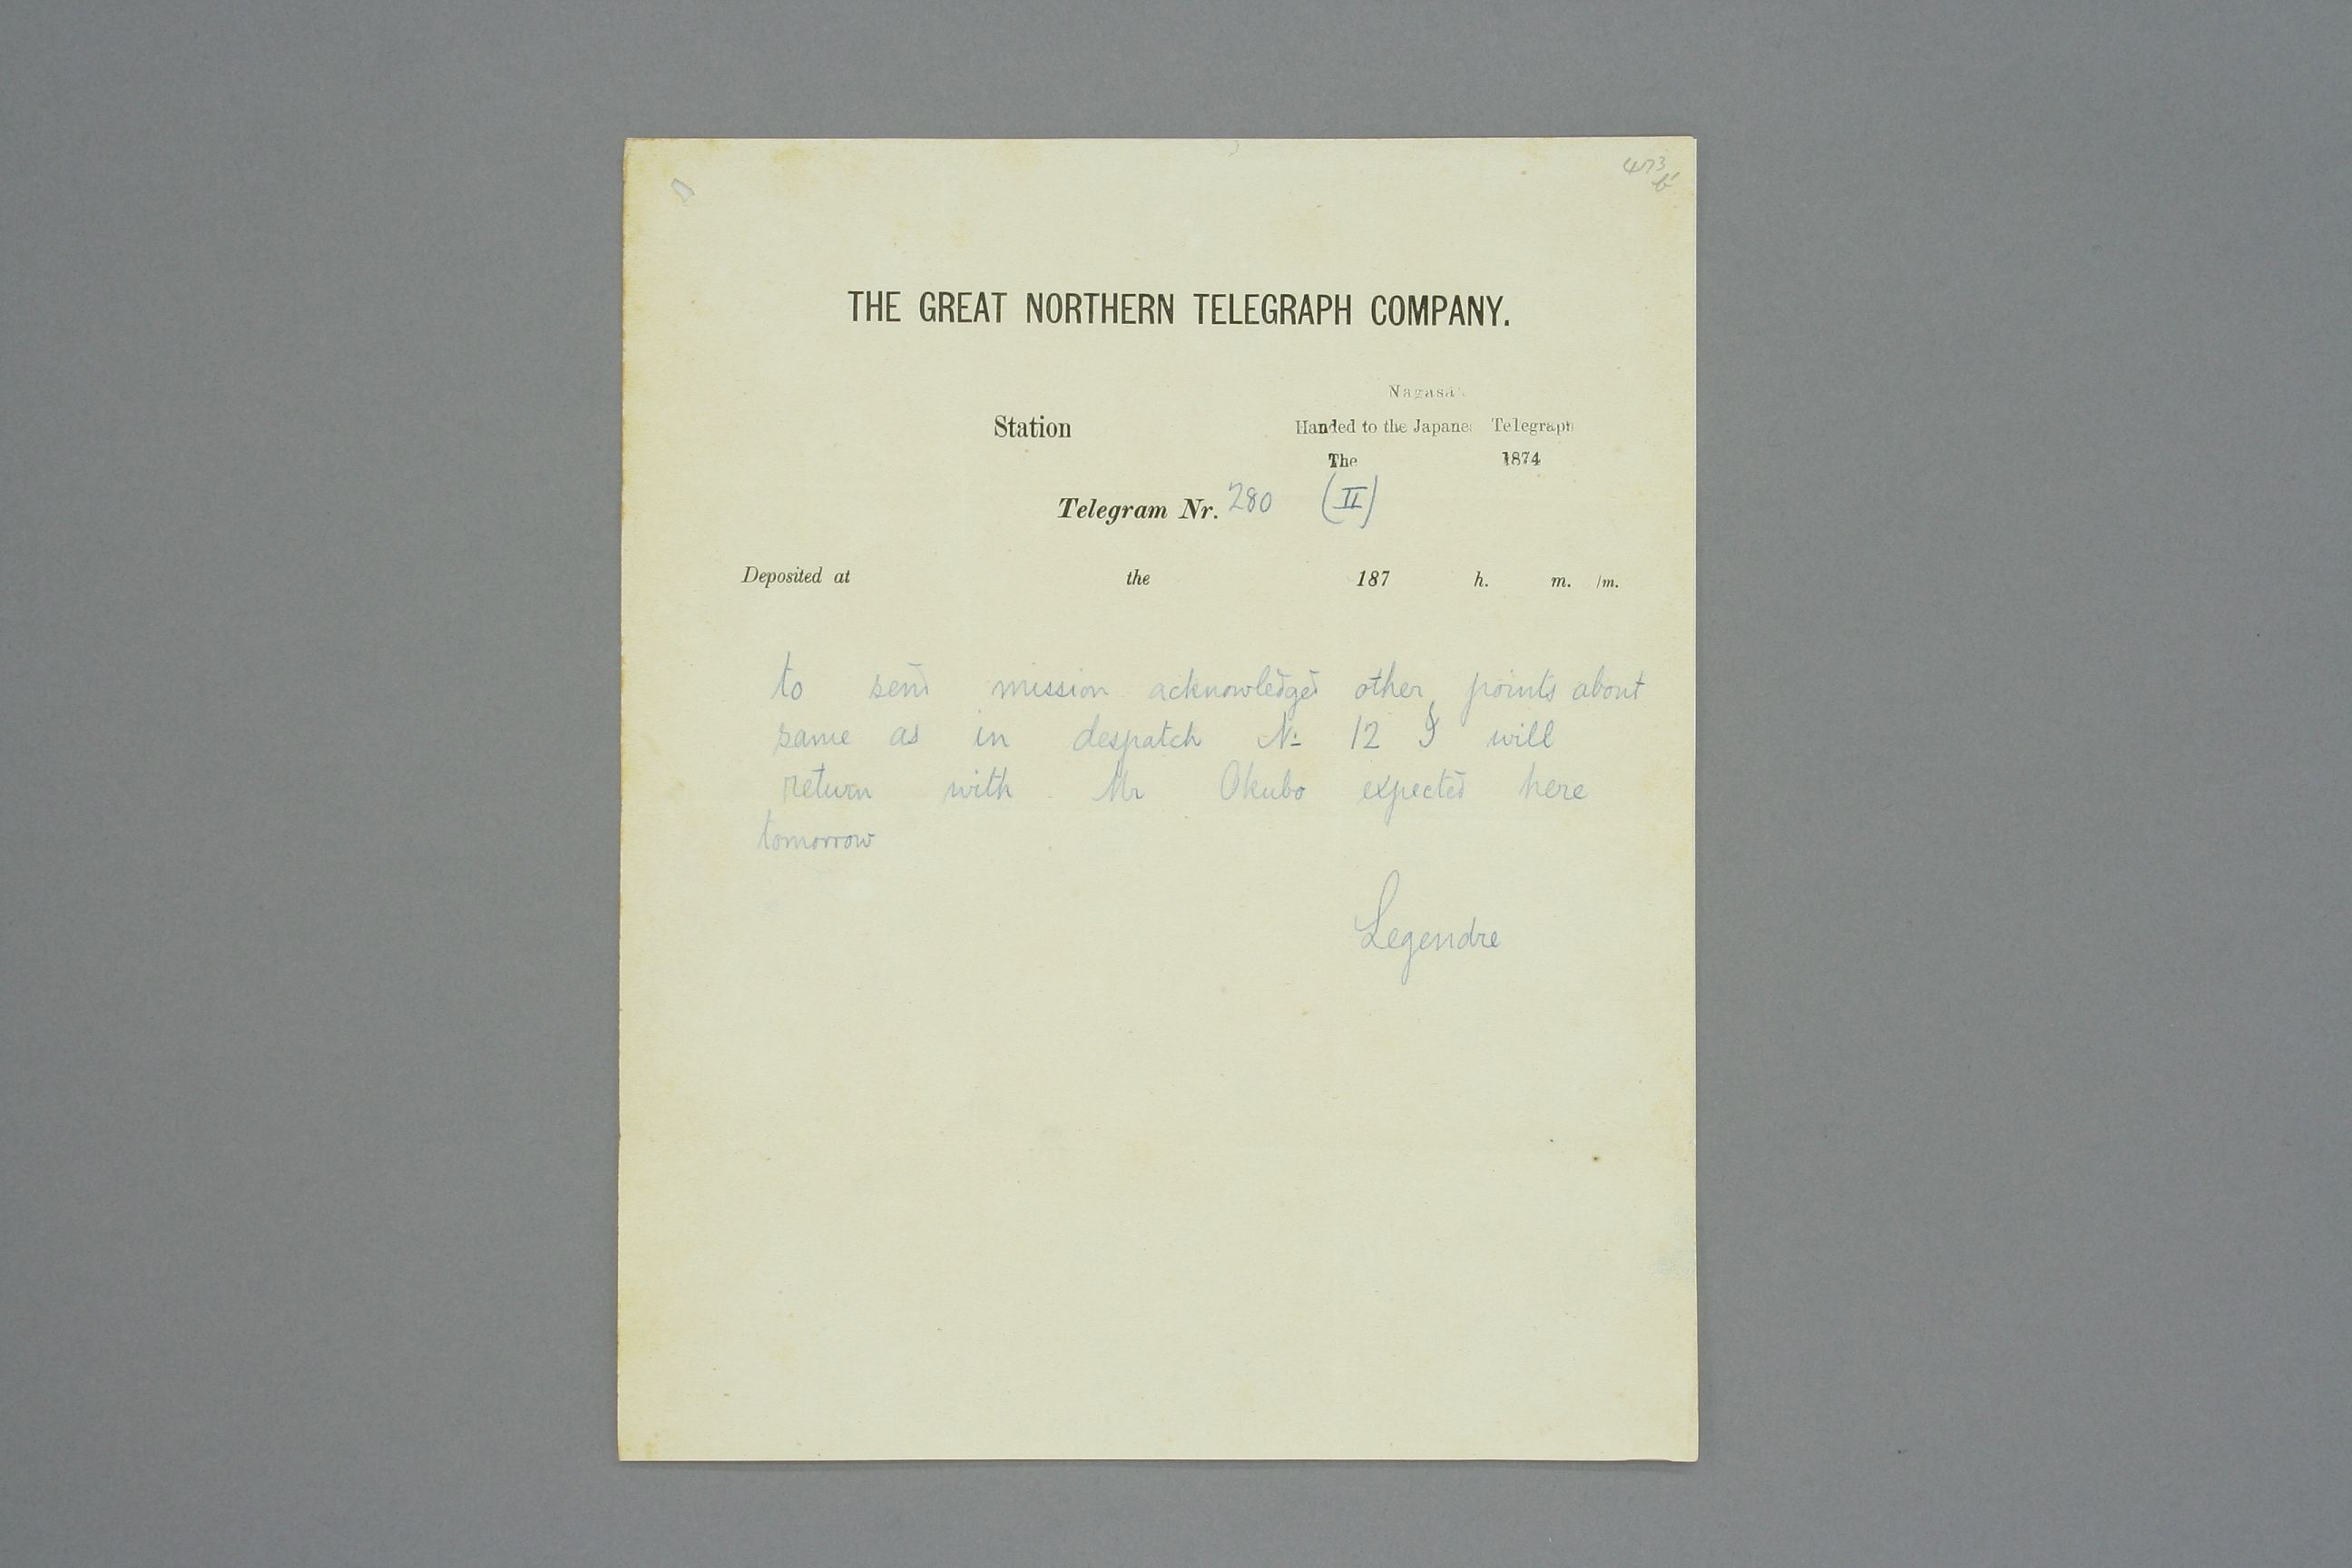 473
THE GREAT NORTHERN TELEGRAPH COMPANY.
Nagasa
Station
Handed to the Japane Telegraph
The 1874
Telegram Nr. 280 (II)
Deposited at the 187 h. m. /m.
to send mission acknowledged other points about
same as in despatch No 12 I will
return with Mr Okubo expected here
tomorrow
Legendre